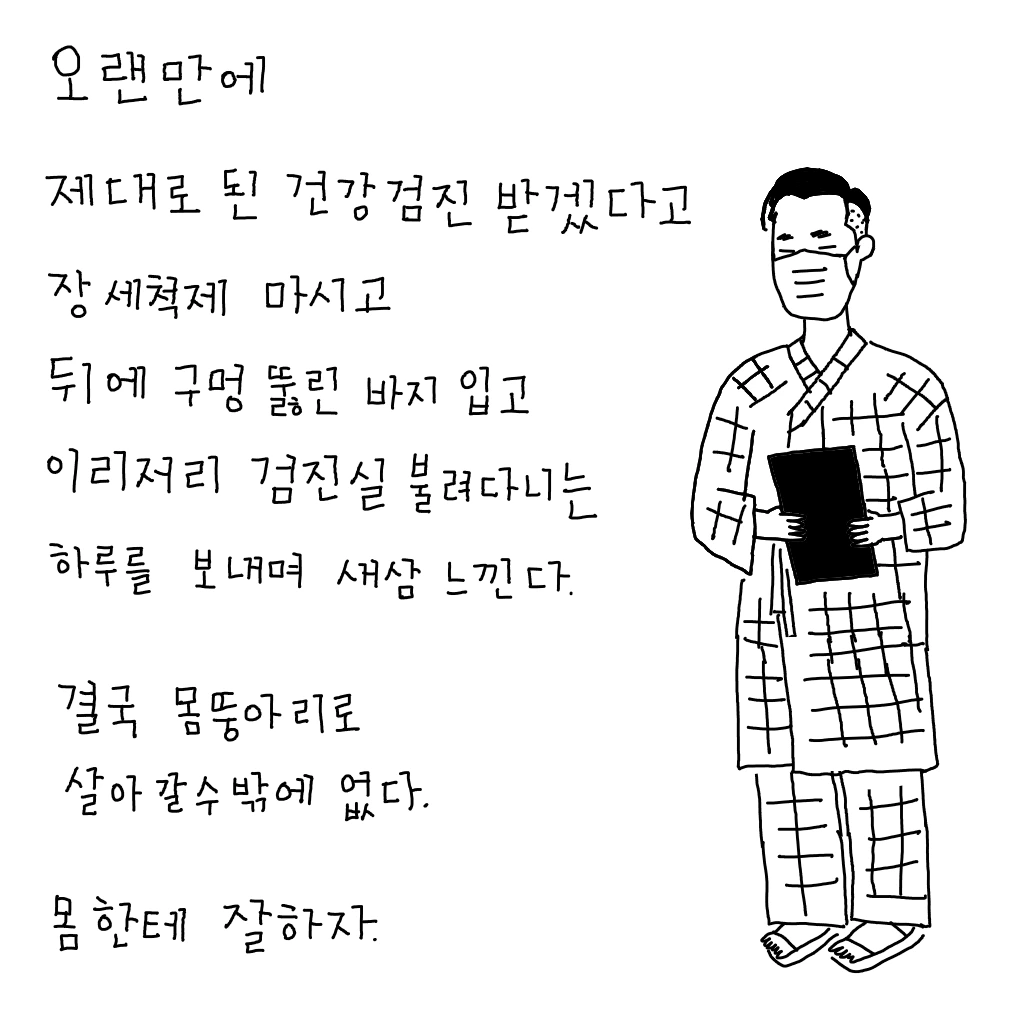 오랜만에
제대로 된 건강검진 받겠다고
장세척제 마시고
뒤에 구멍 뚫린 바지 입고
이리저리 검진실 불려다니는
하루를 보내며 새삼 느낀다.
결국 몸뚱아리로
살아갈수밖에 없다.
몸한테 잘하자.